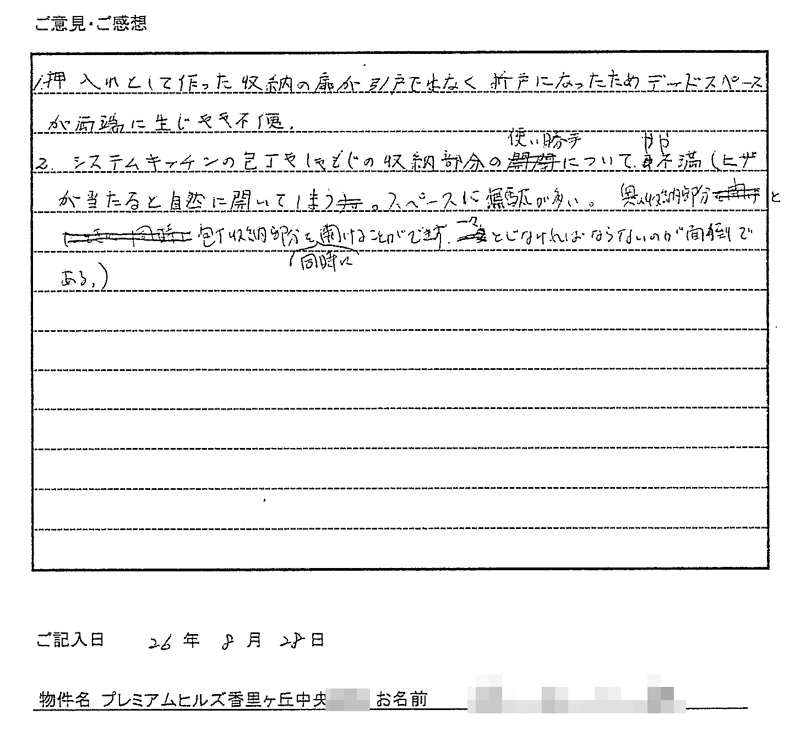 ご意見・ご感想
1.押入れとして作った収納の扉が引戸でなく折戸になったためデッドスペース
が両端に生じやや不便.
使い勝手 やや
2. システムキッチンの包丁やしゃもじの収納部分の について、不満(ヒザ
が当たると自然に開いてしまう。スペースに無駄が多い。奥の収納部分 と
包丁収納部分を開けることができず、一々とじなければならないのが面倒で
同時に
ある。)
ご記入日 26年 8月 28日
物件名 プレミアムヒルズ香里ヶ丘中央 お名前